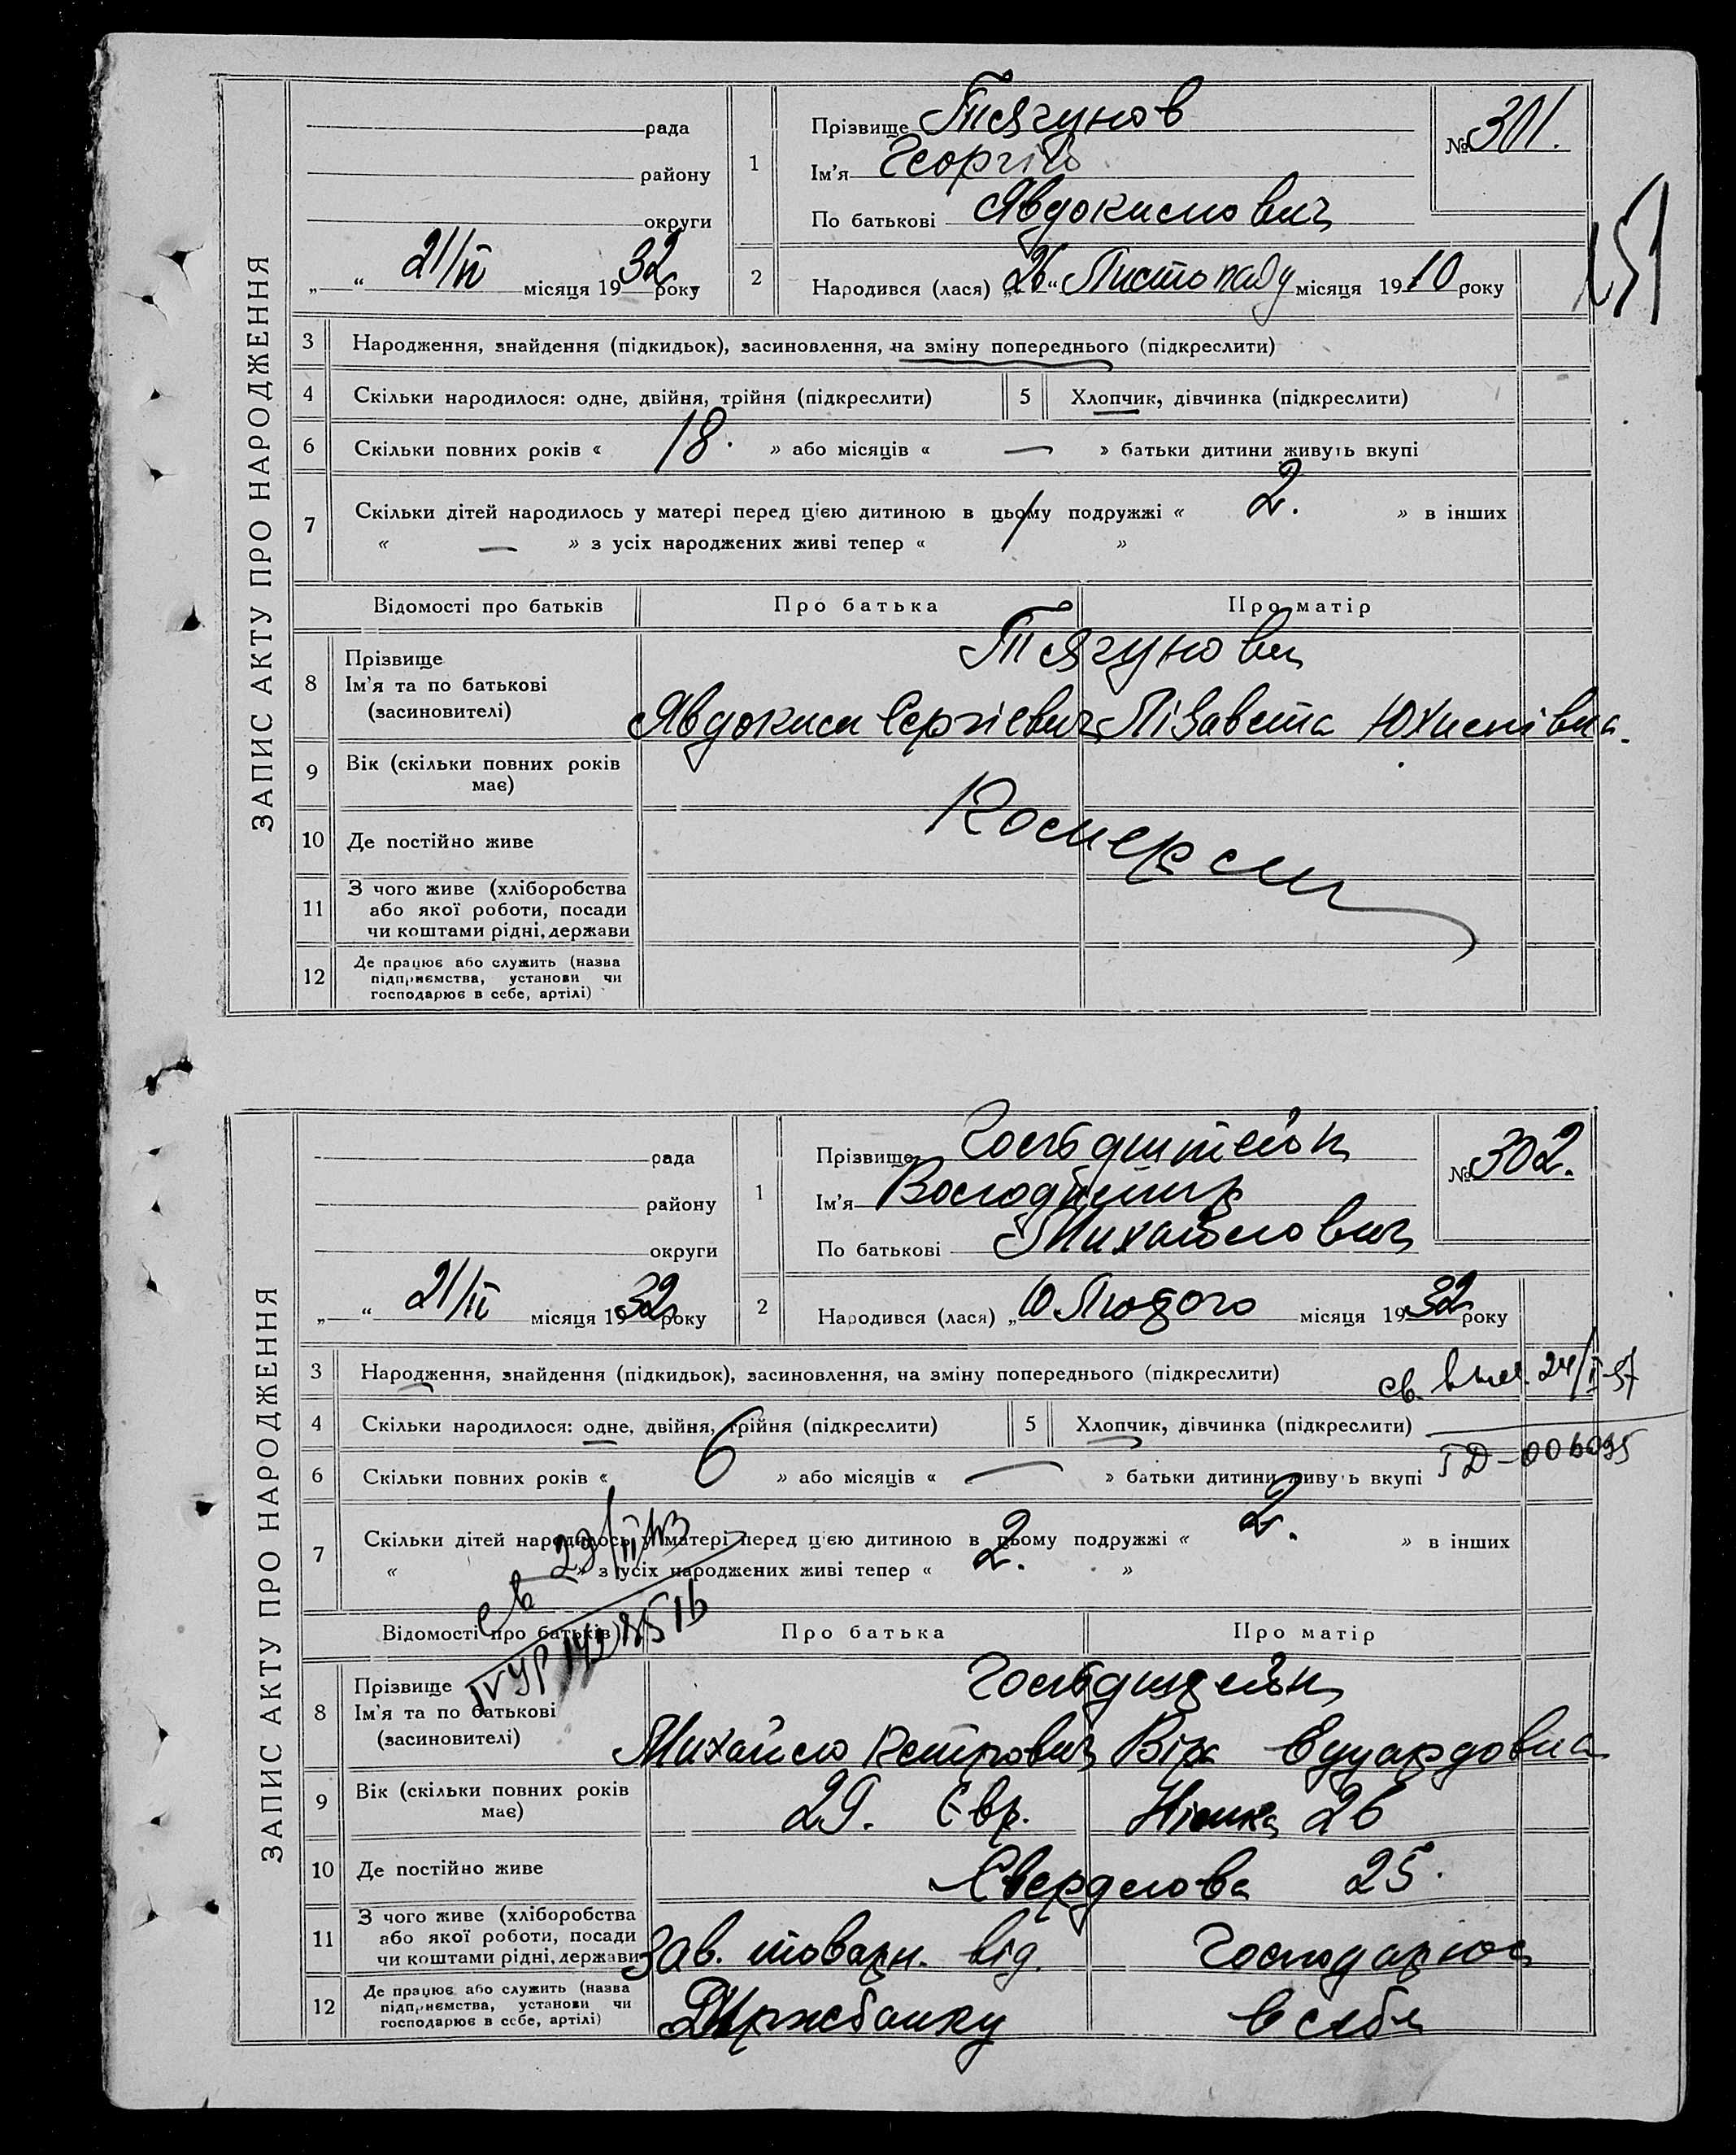 ЗАПИС АКТУ ПРО НАРОДЖЕННЯ
рада
району
округи
„ “ 21/II місяця 1932 року
1
Прізвище Тягунов
Ім'я Георгій
По батькові Явдокимович
№ 301.
151
2
Народився (лася) „26“ Листопаду місяця 1910 року
3 Народження, знайдення (підкидьок), засиновлення, на зміну попереднього (підкреслити)
4 Скільки народилося: одне, двійня, трійня (підкреслити)
5 Хлопчик, дівчинка (підкреслити)
6 Скільки повних років « 18. » або місяців « — » батьки дитини живуть вкупі
7 Скільки дітей народилось у матері перед цією дитиною в цьому подружжі « 2. » в інших
« — » з усіх народжених живі тепер « 1 »
Відомості про батьків Про батька Про матір
8 Прізвище
Ім'я та по батькові
(засиновителі)
Тягунови
Явдоким Сергієвич Лізавета Юхимівна.
9 Вік (скільки повних років має)
10 Де постійно живе
11 З чого живе (хліборобства
або якої роботи, посади
чи коштами рідні, держави
12 Де працює або служить (назва
підприємства, установи чи
господарює в себе, артілі)
ЗАПИС АКТУ ПРО НАРОДЖЕННЯ
рада
району
округи
„ “ 21/II місяця 1932 року
1
Прізвище Гольдштейн
Ім'я Володимир
По батькові Михайлович
№ 302.
2
Народився (лася) „10 Лютого місяця 1932 року
3 Народження, знайдення (підкидьок), засиновлення, на зміну попереднього (підкреслити)
4 Скільки народилося: одне, двійня, трійня (підкреслити)
5 Хлопчик, дівчинка (підкреслити)
6 Скільки повних років « 6 » або місяців « — » батьки дитини живуть вкупі
7 Скільки дітей народилось у матері перед цією дитиною в цьому подружжі « 2. » в інших
« » з усіх народжених живі тепер « 2. »
Відомості про батьків Про батька Про матір
8 Прізвище
Ім'я та по батькові
(засиновителі)
Гольдштейн
Михайло Петрович Віра Едуардовна
9 Вік (скільки повних років має)
29. Євр. Німка 26
10 Де постійно живе
Свердлова 25.
11 З чого живе (хліборобства
або якої роботи, посади
чи коштами рідні, держави
Зав. товарн. від. Господарює
12 Де працює або служить (назва
підприємства, установи чи
господарює в себе, артілі)
Держбанку в себе